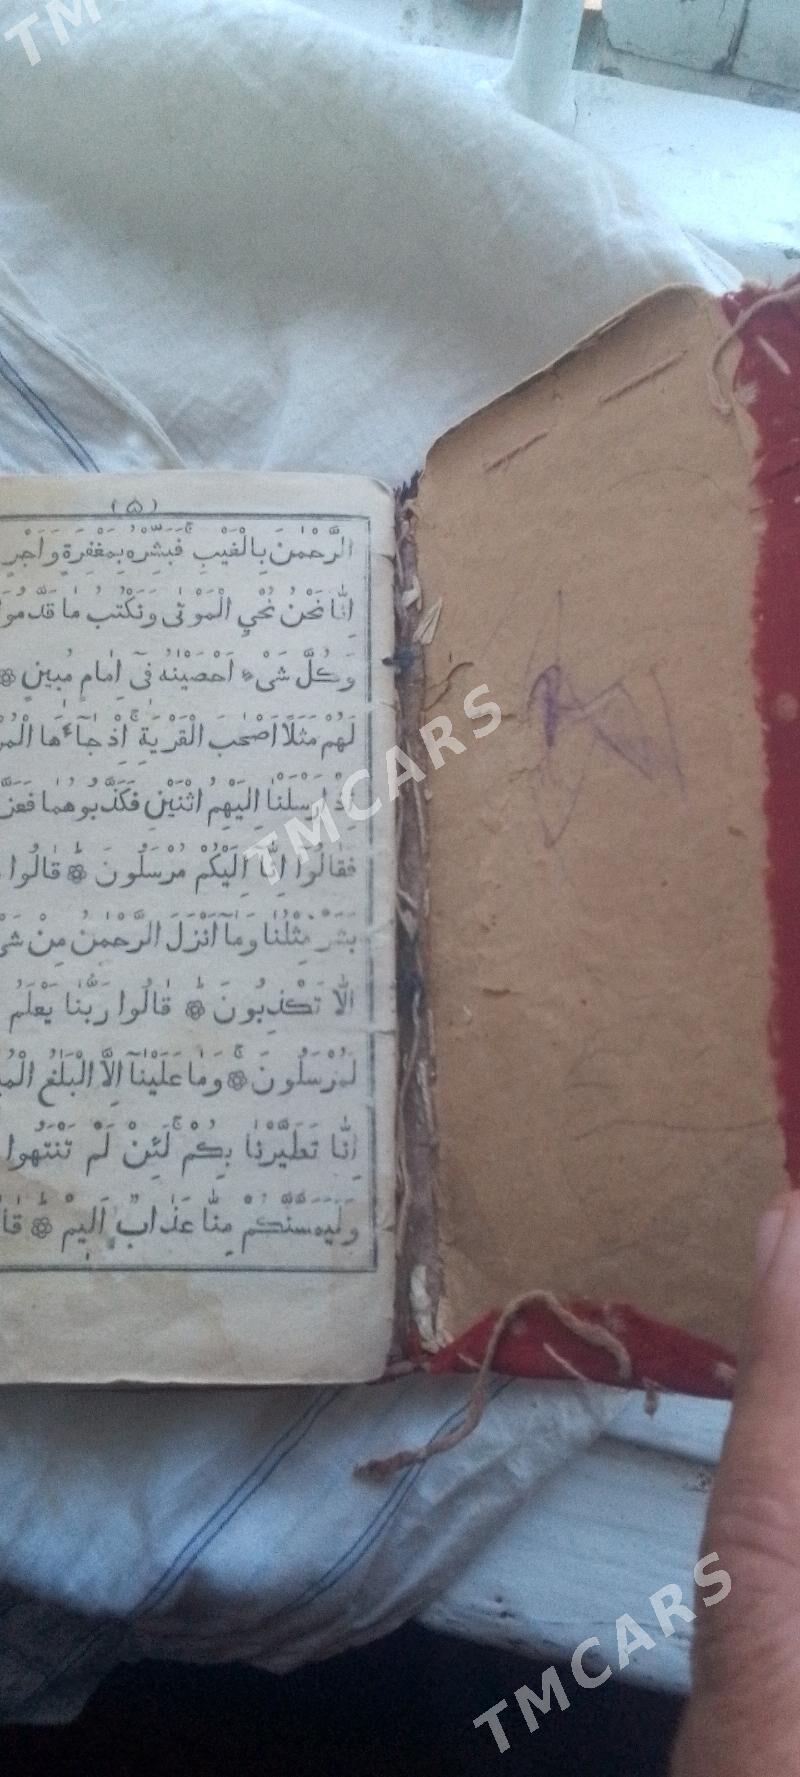 TMCARS
(۵)
الرَّحْمٰنَ بِالْغَيْبِ ۚ فَبَشِّرْهُ بِمَغْفِرَةٍ وَاَجْرٍ
اِنَّا نَحْنُ نُحْيِ الْمَوْتٰى وَنَكْتُبُ مَا قَدَّمُوا
وَكُلَّ شَىْءٍ اَحْصَيْنٰهُ فٓى اِمَامٍ مُبِينٍ
لَهُمْ مَثَلًا اَصْحٰبَ الْقَرْيَةِ ۚ اِذْ جَآءَهَا
اِذْ اَرْسَلْنَا اِلَيْهِمُ اثْنَيْنِ فَكَذَّبُوهُمَا
فَقَالُوٓا اِنَّا اِلَيْكُمْ مُرْسَلُونَ قَالُوا
TMCARS
بَشَرٌ مِثْلُنَا وَمَآ اَنْزَلَ الرَّحْمٰنُ مِنْ
اِلَّا تَكْذِبُونَ قَالُوا رَبُّنَا يَعْلَمُ
لَمُرْسَلُونَ وَمَا عَلَيْنَآ اِلَّا الْبَلٰغُ
اِنَّا تَطَيَّرْنَا بِكُمْ ۚ لَئِنْ لَمْ تَنْتَهُوا
وَلَيَمَسَّنَّكُمْ مِنَّا عَذَابٌ اَلِيمٌ
TMCARS